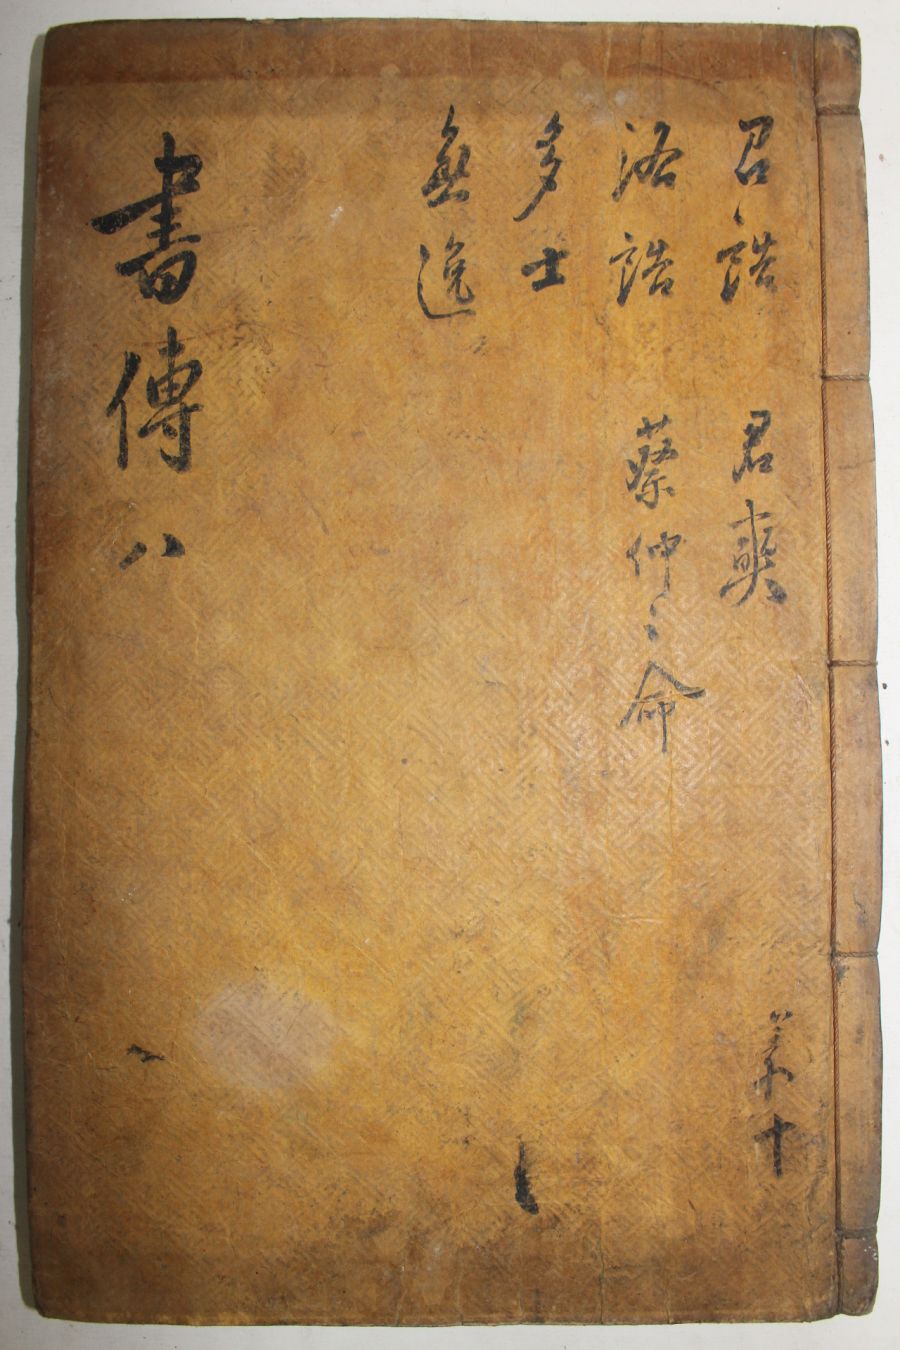 召誥 君奭
洛誥 蔡仲之命
多士
無逸
書傳 八
十